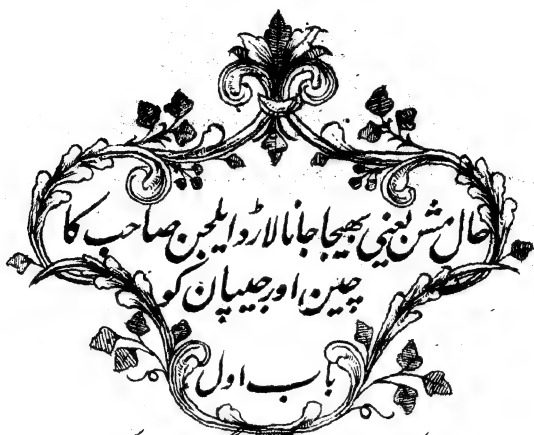 حال مشن یعنی بھیجا جانا لارڈ ایلجن صاحب کا
چین اور جیپان کو
باب اول